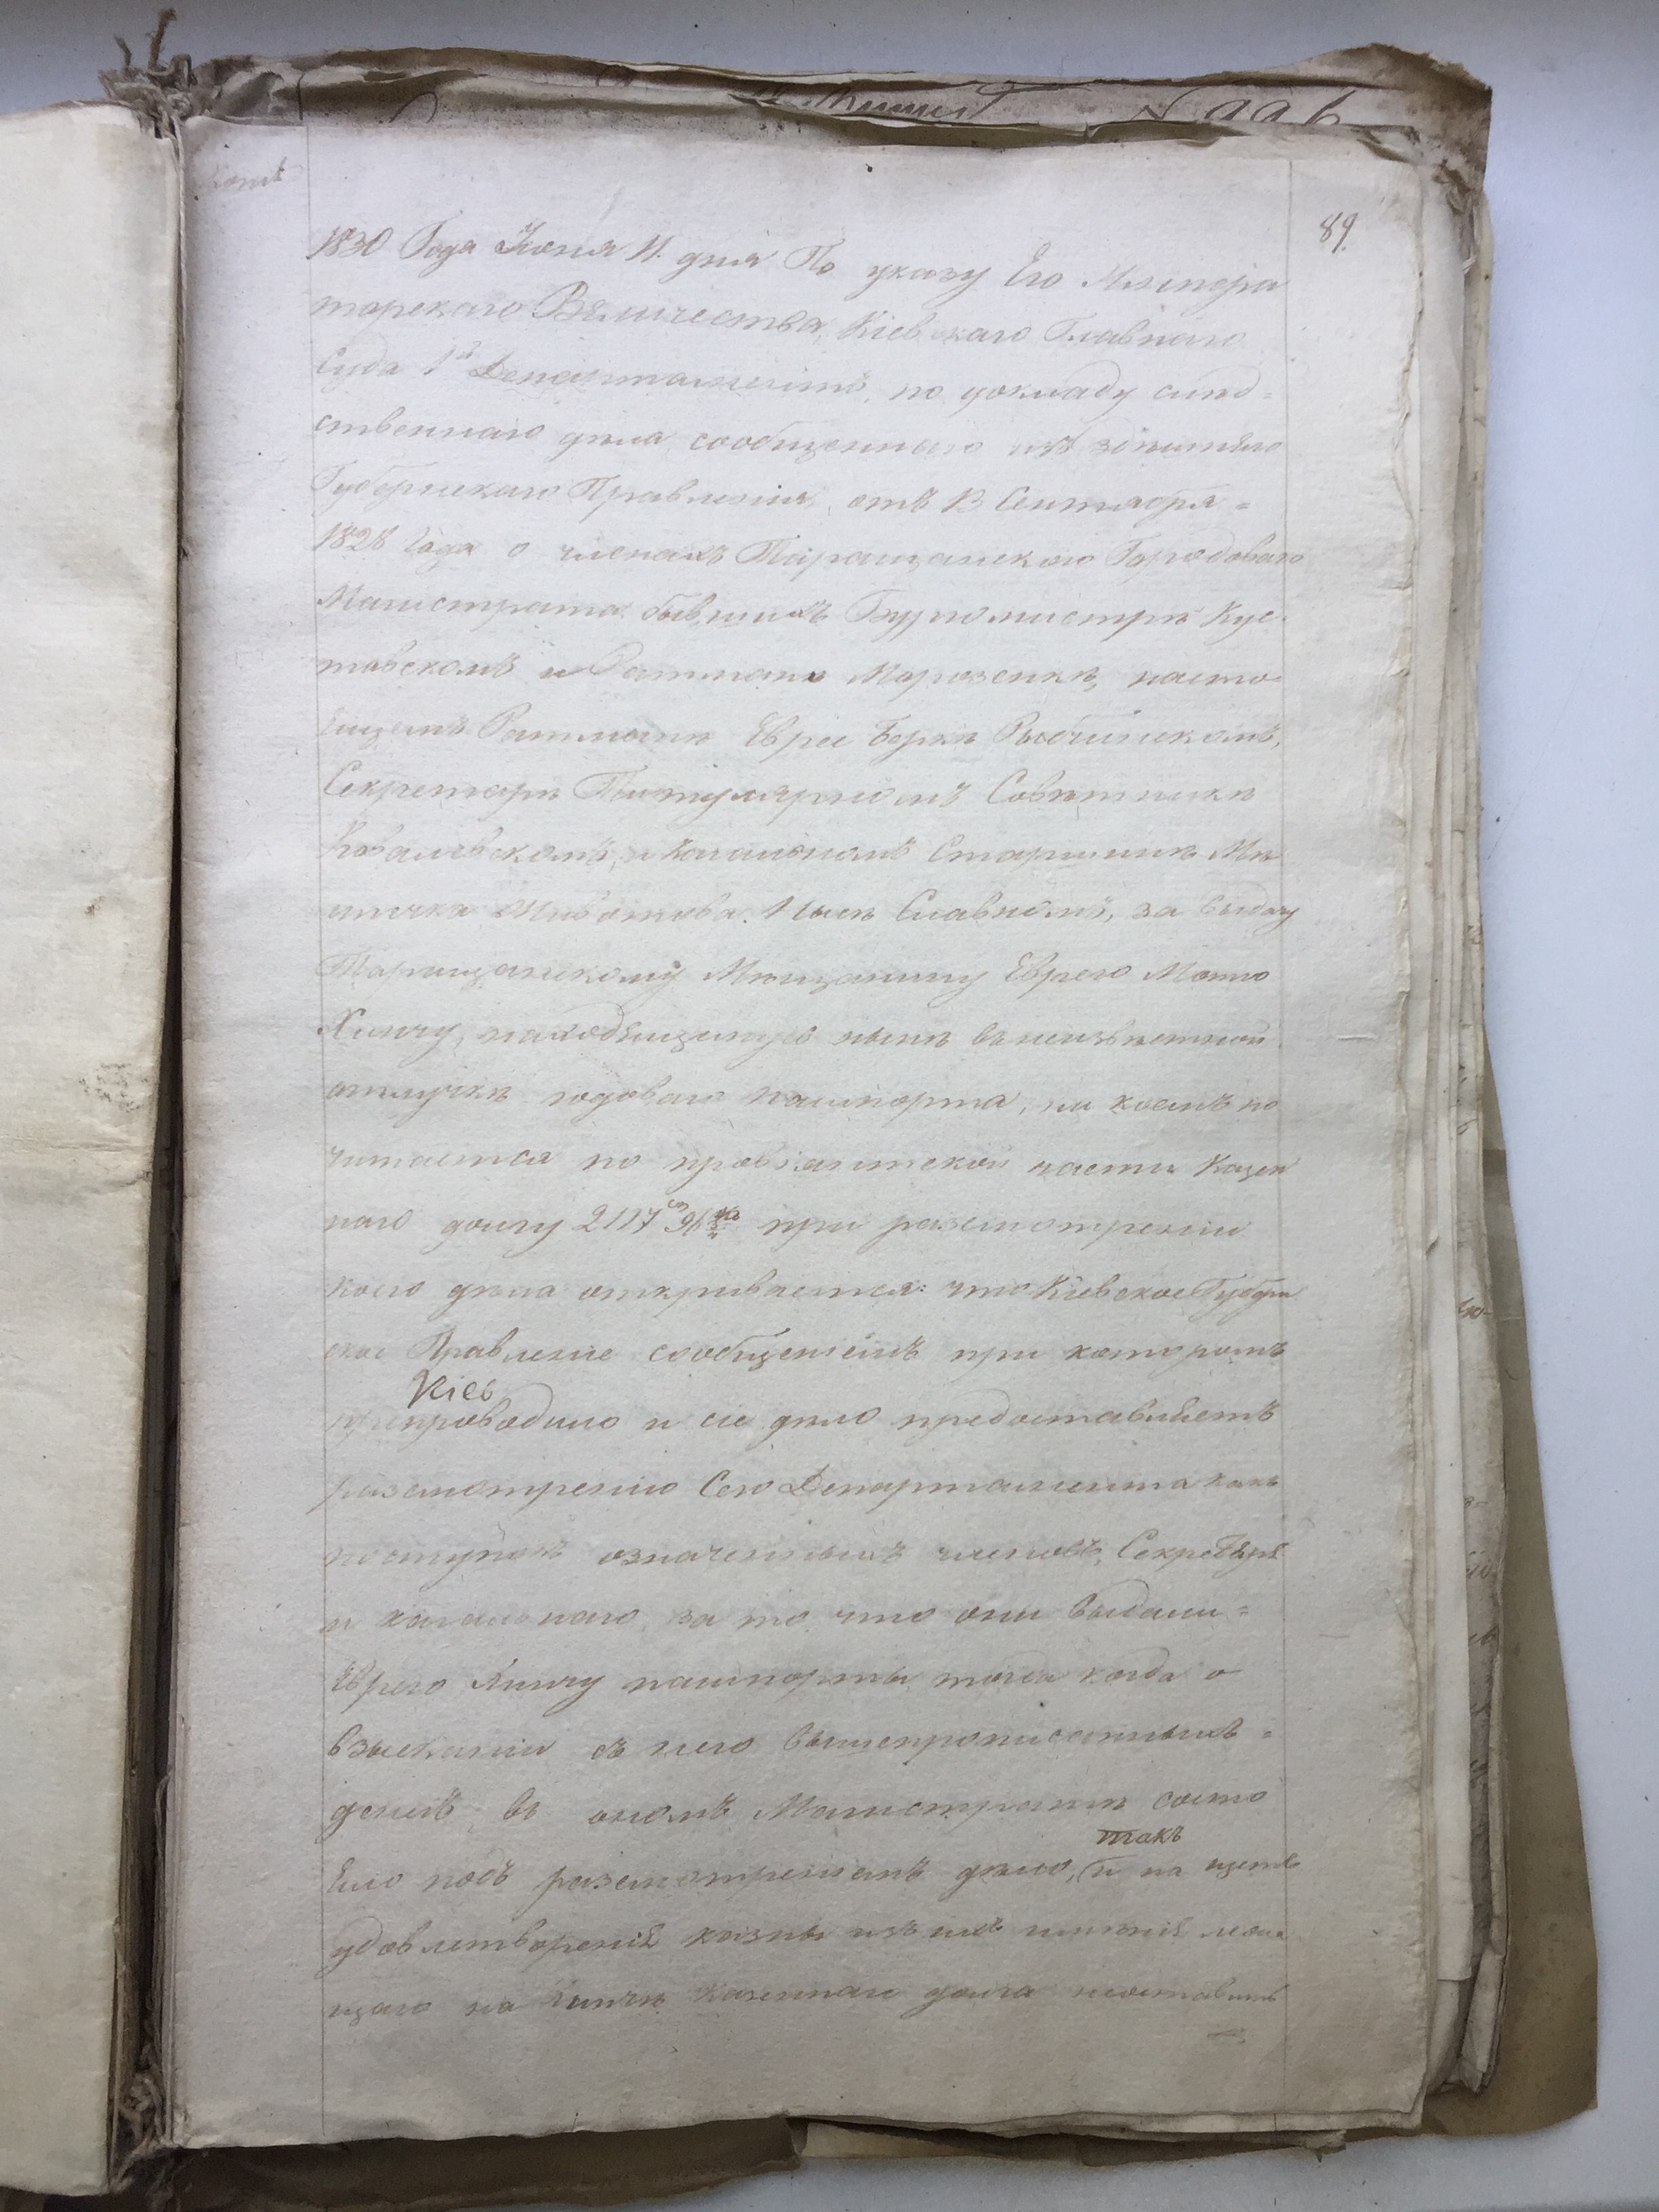 89.
1830 Года Іюня 11. дня По указу Его Импера
торскаго Величества, Кіевскаго Главнаго
Суда 1й Департаментъ, по докладу слѣд=
ственнаго дѣла сообщеннаго изъ здѣшняго
Губернскаго Правленія, отъ 13 Сентября =
1828 года о членахъ Таращанскаго Городоваго
Магистрата бывшихъ Бургомистрѣ Кус-
товскомъ и Ратманѣ Морозенкѣ, насто
ящемъ Ратманѣ Евреѣ Беркѣ Рыбчинскомъ,
Секретарѣ Титулярномъ Совѣтникѣ
Ковалевскомъ, и кагальномъ Старшинѣ
Славномъ, за выдачу
Таращанскому Мѣщанину Еврею
Химчу, находящемуся нынѣ въ неизвѣстной
отлучкѣ годоваго пашпорта, на коемъ по
читается по провіантской части Казен
наго долгу 2117 при разсмотреніи
коего дѣла открывается: что Кіевское Губерн
ское Правленіе сообщеніемъ при которомъ
Кіев
препроводило и сіе дѣло предоставляетъ
разсмотренію Сего Департамента какъ
поступокъ означенныхъ членовъ, Секретаря
и кагальнаго, за то что они выдали =
Еврею Химчу пашпорты тогда когда о
взысканіи съ него вышепрописанныхъ =
денегъ въ ономъ Магистратѣ состо
такъ
яло подъ разсмотреніемъ дѣло, и на щетъ
удовлетворенія казны изъ ихъ имѣнія
щаго на Химчѣ казеннаго долга